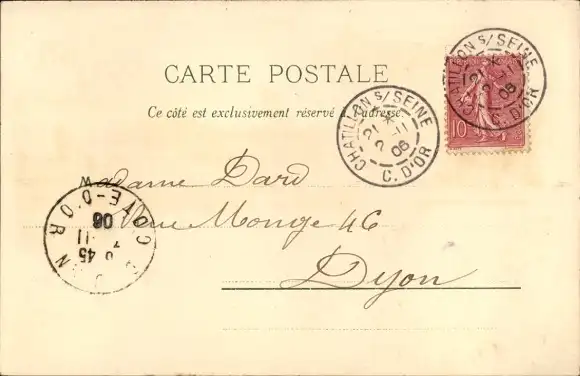 CHATILLON S/ SEINE
21 *
2 -11
06
C. D'OR
10
CARTE POSTALE
Ce côté est exclusivement réservé à l'adresse.
CHATILLON S/ SEINE
21 *
2 -11
06
C. D'OR
Madame Dard
Rue Monge 46
Dijon
COTE-D'OR
45
11
06